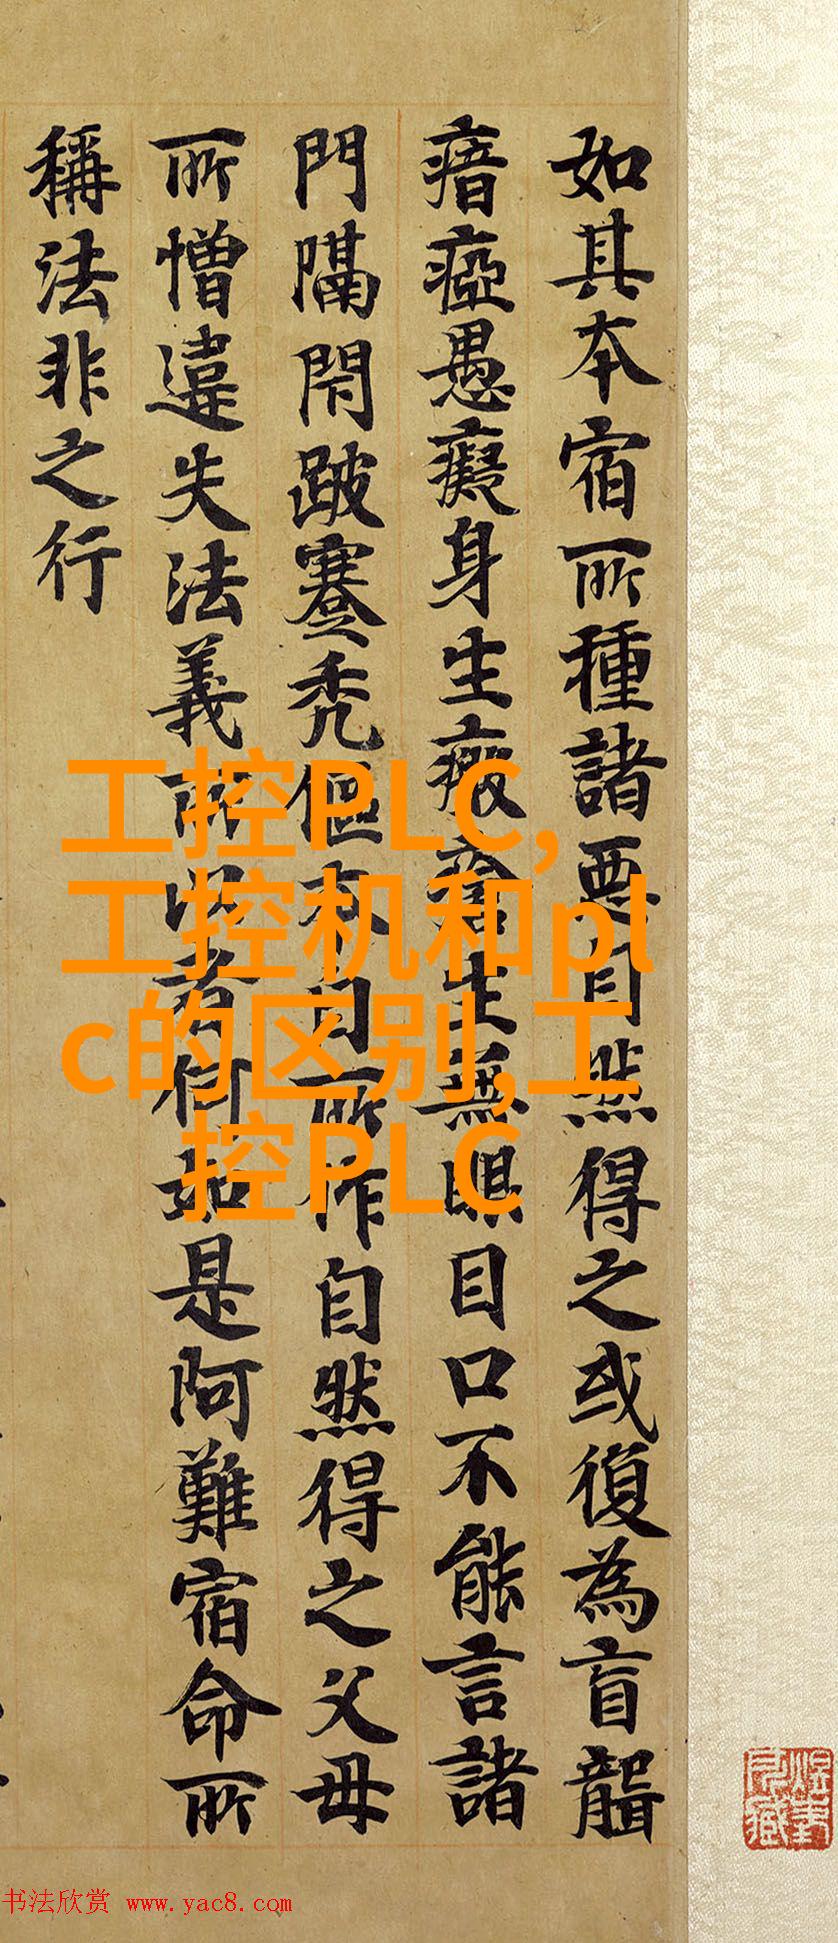 如其本宿所種諸惡自然得之或復為盲聾
瘖瘂愚癡身生瘢瘡生無眼目口不能言諸
門隔閇跛蹇禿傴本自所作自然得之父母
所憎違失法義所以者何如是阿難宿命所
稱法非之行
工控PLC,
工控机和pl
c的区别,工
控PLC
书法欣赏 www.yac8.com